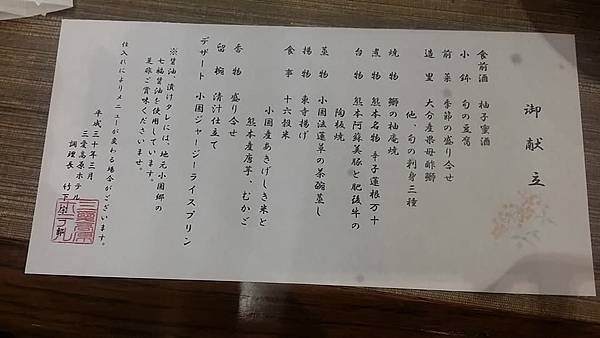 御献立
食前酒 柚子蜜酒
小鉢 旬の豆腐
前菜 季節の盛り合せ
造里 大分産果母酢鰤
他、旬の刺身三種
焼物 鰤の柚庵焼
煮物 熊本名物 辛子蓮根万十
台物 熊本阿蘇美豚と肥後牛の
陶板焼
蒸物 小国法蓮草の茶碗蒸し
揚物 東寺揚げ
食事 十六穀米
小国産あきげしき米と
熊本産唐芋、むかご
香物 盛り合せ
留椀 清汁仕立て
デザート 小国ジャージーライスプリン
※醤油、漬けタレには、地元小国郷の
七福醤油を使用しています。
是非ご賞味くださいませ。
仕入れによりメニューが変わる場合がございます。
平成三十年三月
三愛高原ホテル
調理長 竹下